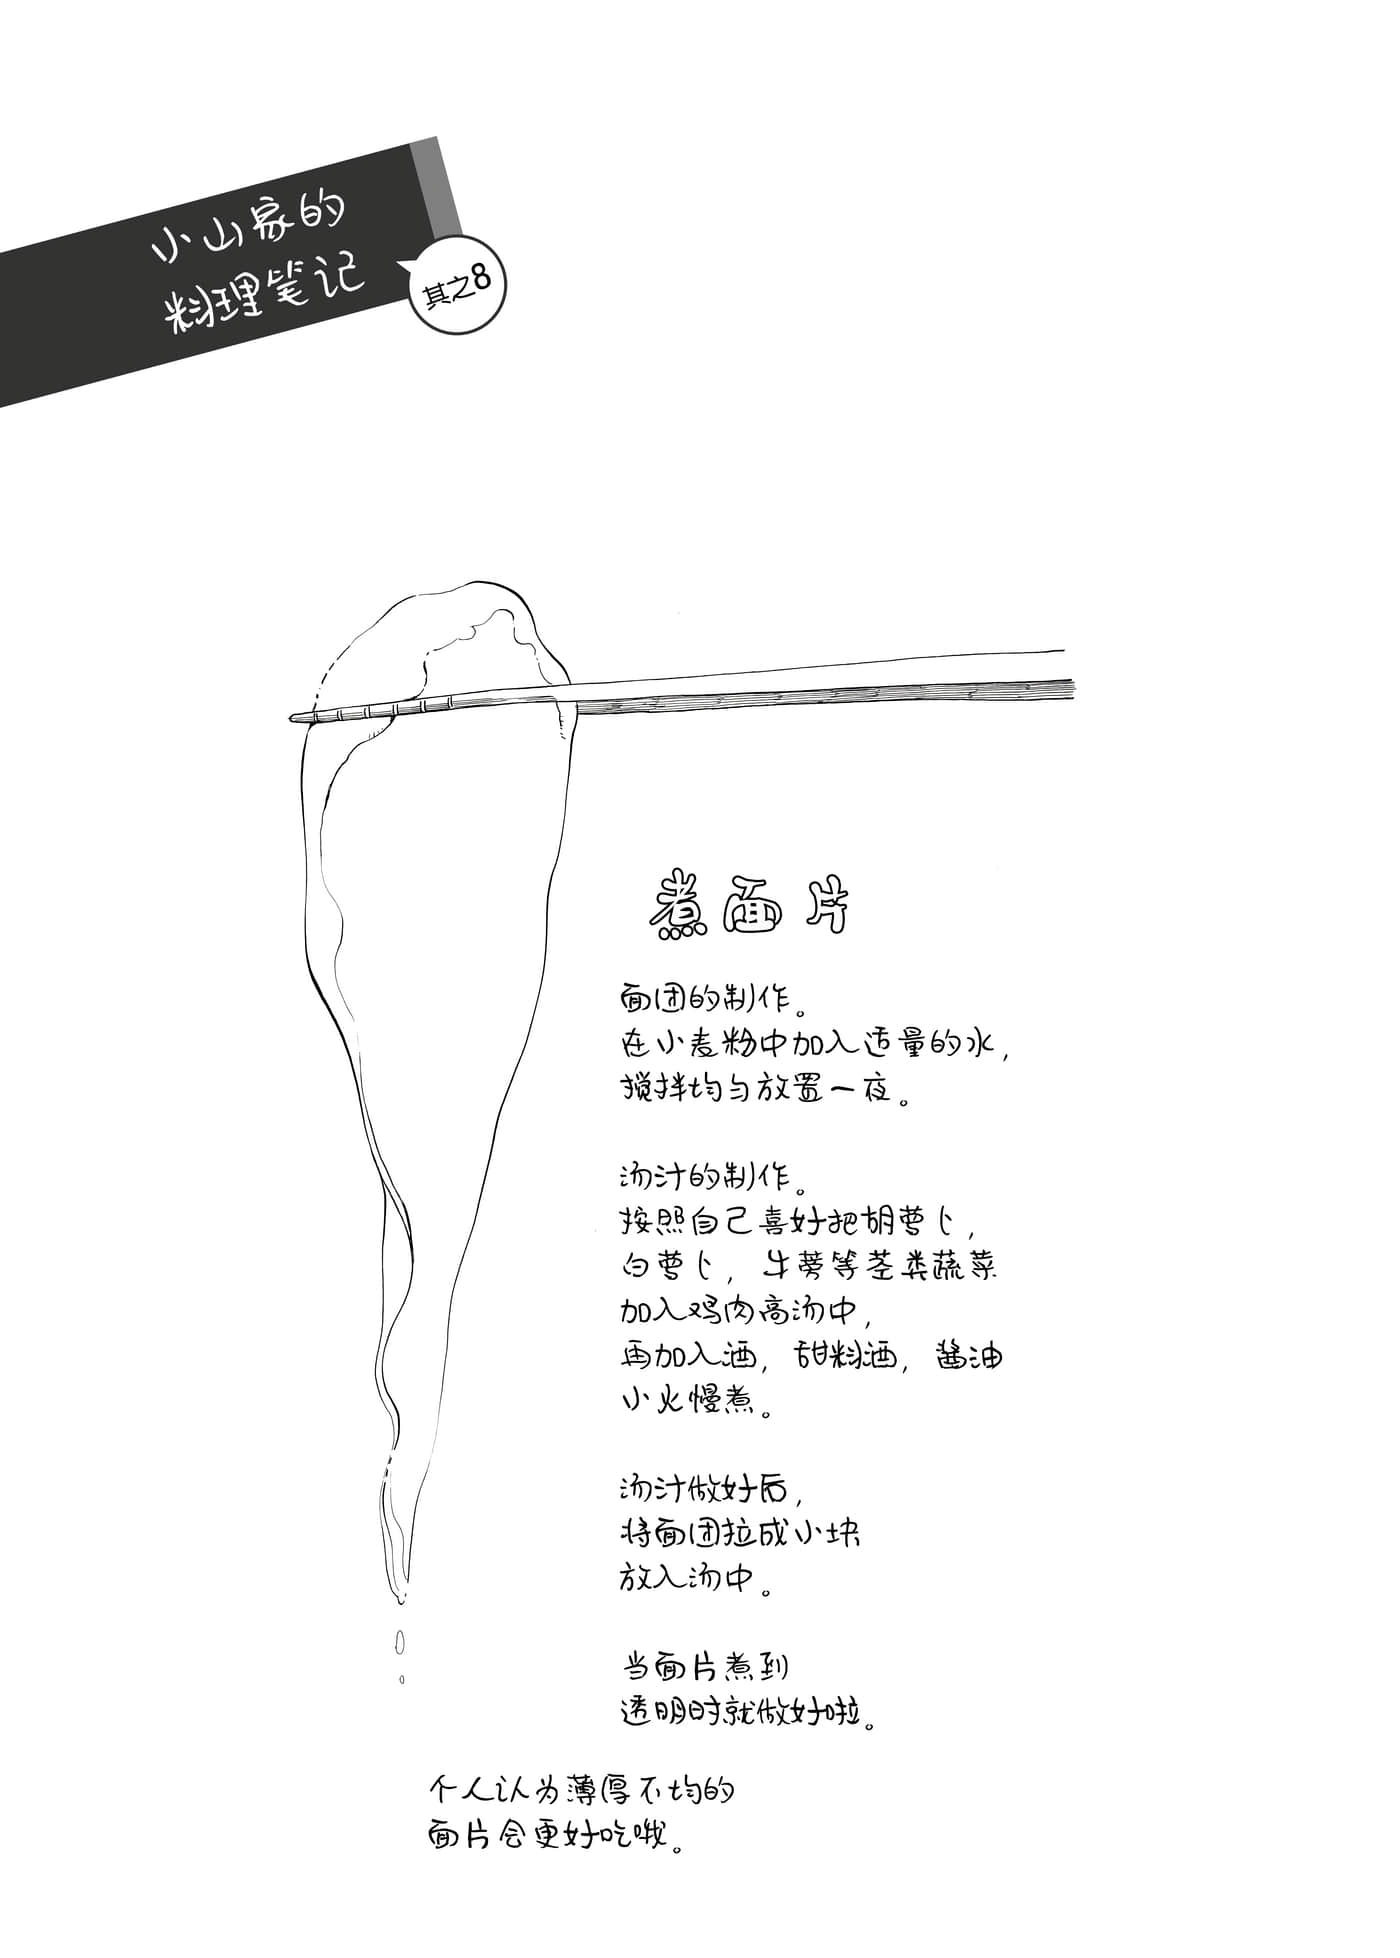 小山家的
料理笔记
其之8
煮面片
面团的制作。
在小麦粉中加入适量的水,
搅拌均匀放置一夜。
汤汁的制作。
按照自己喜好把胡萝卜,
白萝卜, 牛蒡等茎类蔬菜
加入鸡肉高汤中,
再加入酒, 甜料酒, 酱油
小火慢煮。
汤汁做好后,
将面团拉成小块
放入汤中。
当面片煮到
透明时就做好啦。
个人认为薄厚不均的
面片会更好吃哦。